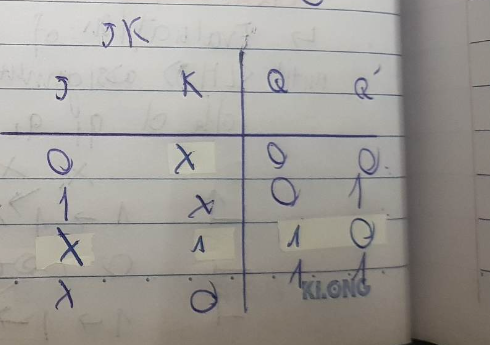 JK
J K Q Q'
0 X 0 0
1 X 0 1
X 1 1 0
X 0 1 1
KLONG